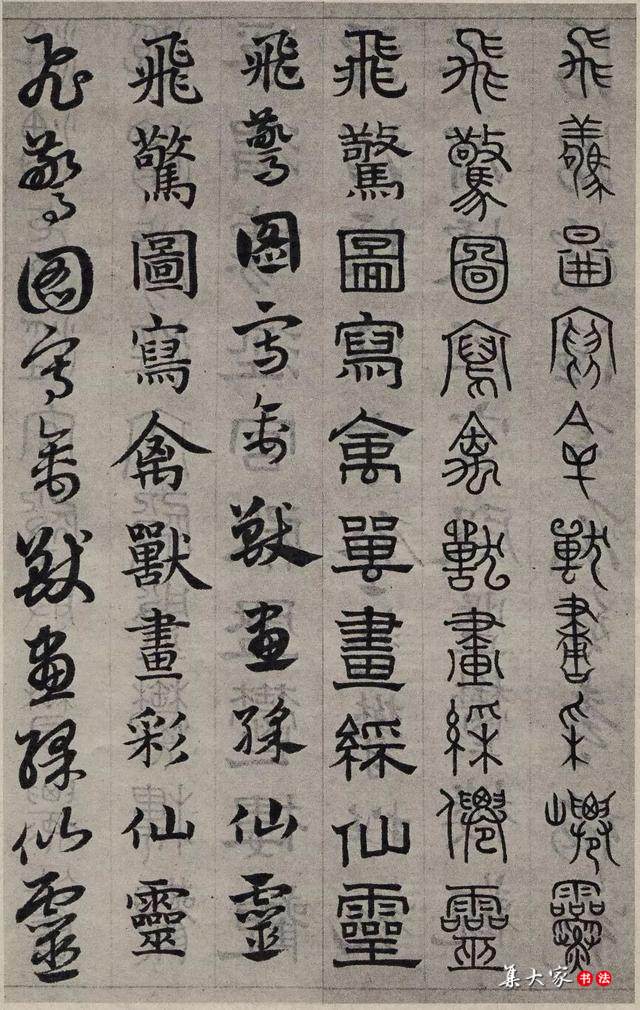 飛驚圖寫禽獸畫采僊靈
飛驚圖寫禽獸畫綵僊靈
飛驚圖寫禽嘼畫綵仙靈
飛驚圖寫禽獸畫綵仙靈
飛驚圖寫禽獸畫彩仙靈
飛驚圖寫禽獸畫綵仙靈
集大家书法